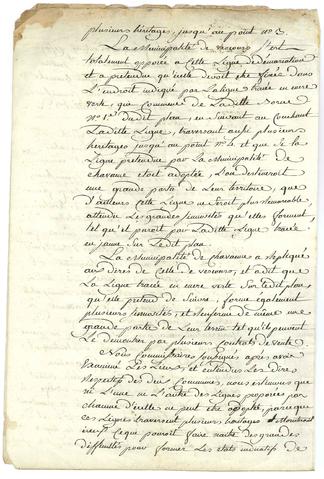 plusieurs héritages, jusqu'au point n.o 3.
La Municipalité de vercours s'est
totalement opposée a Cette Ligne de démarcation
et a prétendu qu'elle devoit être fixée Dans
L'endroit indiqué par La ligne tracée en encre
verte, qui commence de Ladite Borne
N.o 1.er du dit plan, en suivant au Couchant
Ladite Ligne, traversant aussi plusieurs
héritages jusqu'au point n.o 4. et que si la
Ligne prétendue par La Municipalité De
chavanne étoit adoptée, on distrairoit
une grande partie de Leur territoire, que
D'ailleurs Cette Ligne ne seroit plus
attendu Les grandes sinuosités qu'elles forment,
tel qu'il paroit par Ladite Ligne tracée
en jaune sur Ledit plan.
La Municipalité de chavanne a répliqué
aux dires de Celle de vercours, et a dit que
La Ligne tracée en encre verte sur Ledit plan
qu'elle prétend de suivre, forme également
plusieurs sinuosités, et renferme de même une
grande partie de Leur terrein tel qu'ils peuvent
Le démontrer par plusieurs contrats de vente
Nous Commissaires soussignés, après avoir
Examiné Les Lieux et entendus Les Dires
respectifs des deux Communes, nous estimons que
ni L'une ni L'autre des Lignes proposées par
chacune d'icelles ne peut être adoptée, parceque
ces Lignes traversent plusieurs héritages
Ce qui pourroit faire naitre de grandes
difficultés pour former Les états indicatifs de